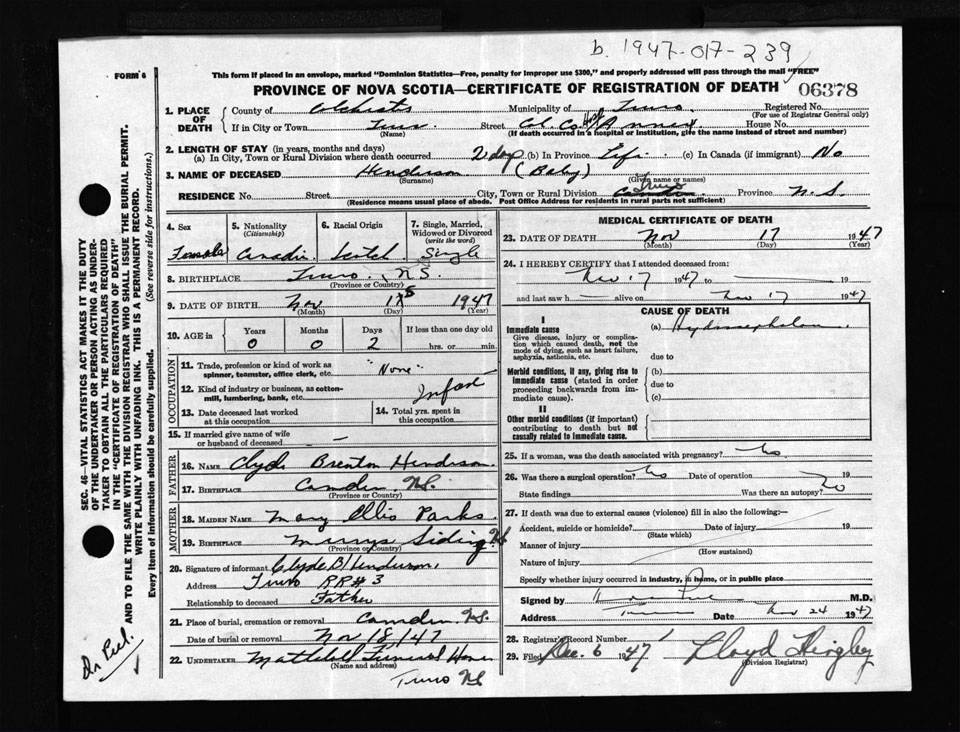 b. 1947-017-239
FORM 6
This form if placed in an envelope, marked "Dominion Statistics—Free, penalty for improper use $300," and properly addressed will pass through the mail "FREE"
PROVINCE OF NOVA SCOTIA—CERTIFICATE OF REGISTRATION OF DEATH
06378
1. PLACE OF DEATH
County of Colchester Municipality of Truro Registered No.
(For use of Registrar General only)
If in City or Town Truro Street Col. Co. Hosp Annex House No.
(Name) (If death occurred in a hospital or institution, give the name instead of street and number)
2. LENGTH OF STAY (in years, months and days)
(a) In City, Town or Rural Division where death occurred 2 days (b) In Province Life (c) In Canada (if immigrant) No
3. NAME OF DECEASED Henderson (Baby)
(Surname) (Given name or names)
RESIDENCE No. Street City, Town or Rural Division Truro Camden Province N.S
(Residence means usual place of abode. Post Office Address for residents in rural parts not sufficient)
4. Sex
Female
5. Nationality
(Citizenship)
Canadian
6. Racial Origin
Scotch
7. Single, Married, Widowed or Divorced
(write the word)
Single
8. BIRTHPLACE Truro, N.S.
(Province or Country)
9. DATE OF BIRTH Nov 1947
(Month) (Day) (Year)
10. AGE in
Years Months Days If less than one day old
0 0 2 hrs. or min.
OCCUPATION
11. Trade, profession or kind of work as spinner, teamster, office clerk, etc. "None"
12. Kind of industry or business, as cotton-mill, lumbering, bank, etc. Infant
13. Date deceased last worked at this occupation
14. Total yrs. spent in this occupation
15. If married give name of wife or husband of deceased —
FATHER
16. NAME Clyde Brenton Henderson
17. BIRTHPLACE Camden N.S.
(Province or Country)
MOTHER
18. MAIDEN NAME Mary Ellis Parks
19. BIRTHPLACE Murrys Siding N.S
(Province or Country)
20. Signature of informant Clyde B Henderson,
Address Truro RR#3
Relationship to deceased Father
21. Place of burial, cremation or removal Camden N.S.
Date of burial or removal Nov 18/47
22. UNDERTAKER Mattatall Funeral Home
(Name and address)
Truro NS
MEDICAL CERTIFICATE OF DEATH
23. DATE OF DEATH Nov 17 1947
(Month) (Day) (Year)
24. I HEREBY CERTIFY that I attended deceased from:
Nov 17 1947 to 19
and last saw h alive on Nov 17 1947
CAUSE OF DEATH
I
Immediate cause
Give disease, injury or complication which caused death, not the mode of dying, such as heart failure, asphyxia, asthenia, etc.
(a) Hydrocephalus
due to
Morbid conditions, if any, giving rise to immediate cause (stated in order proceeding backwards from immediate cause).
(b)
due to
(c)
II
Other morbid conditions (if important) contributing to death but not causally related to immediate cause.
25. If a woman, was the death associated with pregnancy? No
26. Was there a surgical operation? No Date of operation 19
State findings Was there an autopsy? No
27. If death was due to external causes (violence) fill in also the following:—
Accident, suicide or homicide? Date of injury 19
(State which)
Manner of injury
(How sustained)
Nature of injury
Specify whether injury occurred in industry, in home, or in public place
Signed by M.D.
Address Truro Date Nov 24 1947
28. Registrar's Record Number
29. Filed Dec. 6 1947 Lloyd Hingley
(Division Registrar)
SEC. 46—VITAL STATISTICS ACT MAKES IT THE DUTY
OF THE UNDERTAKER OR PERSON ACTING AS UNDER-
TAKER TO OBTAIN ALL THE PARTICULARS REQUIRED
IN THE "CERTIFICATE OF REGISTRATION OF DEATH"
AND TO FILE THE SAME WITH THE DIVISION REGISTRAR WHO SHALL ISSUE THE BURIAL PERMIT.
WRITE PLAINLY WITH UNFADING INK. THIS IS A PERMANENT RECORD.
Every item of information should be carefully supplied. (See reverse side for instructions.)
Dr Peel.